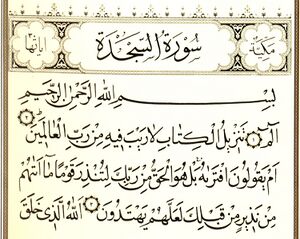 مكية
سورة السجدة
٣٠ آياتها
بسم الله الرحمن الرحيم
الم ١ تنزيل الكتاب لا ريب فيه من رب العالمين ٢
ام يقولون افتريه بل هو الحق من ربك لتنذر قوما ما اتيهم
من نذير من قبلك لعلهم يهتدون ٣ الله الذي خلق